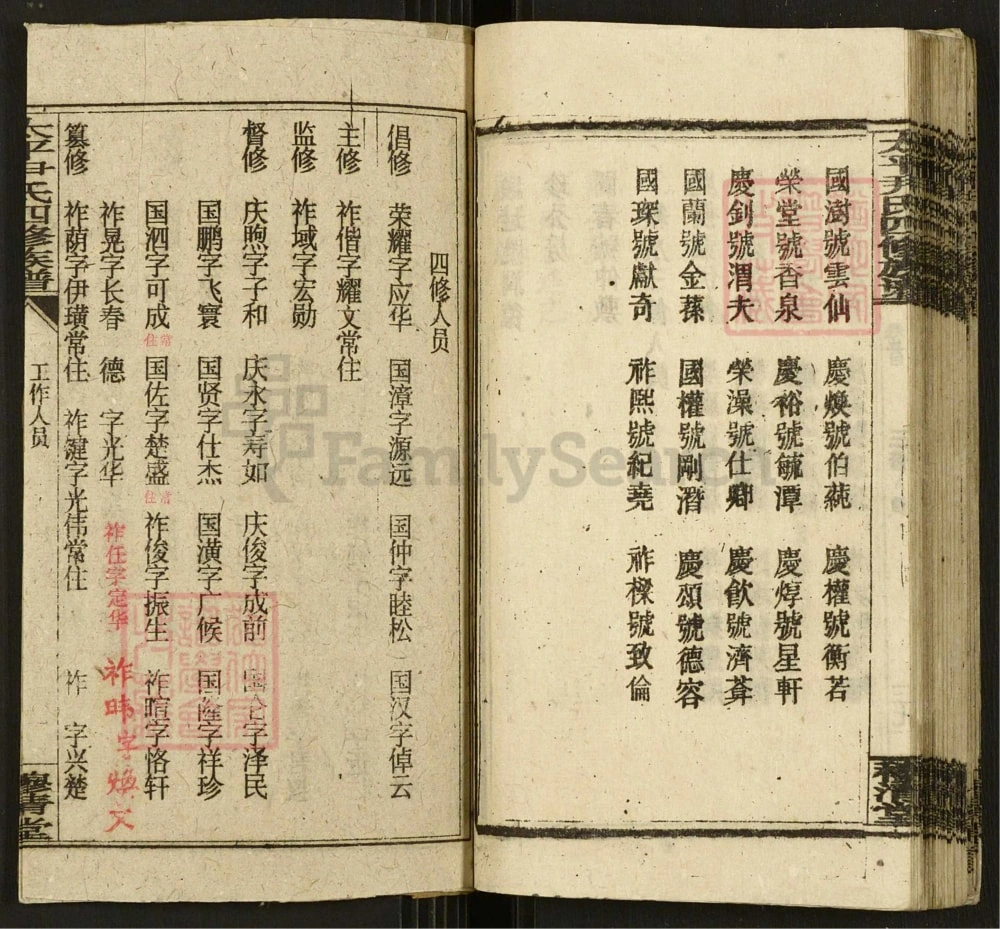 國澍號雲仙 慶煥號伯蒓 慶權號衡若
榮堂號香泉 慶裕號毓潭 慶焞號星軒
慶釗號渭夫 榮澡號仕卿 慶飲號濟葊
國蘭號金蓀 國權號剛潛 慶頌號德容
國琛號獻奇 祚熙號紀堯 祚樑號致倫
四修人员
倡修 荣耀字应华 国漳字源远 国仲字睦松 国汉字倬云
主修 祚偕字耀文常住
监修 祚域字宏勋
督修 庆煦字子和 庆永字寿如 庆俊字成前 字泽民
国鹏字飞寰 国贤字仕杰 国潢字广候 国隆字祥珍
国泗字可成 常住 国佐字楚盛 常住 祚俊字振生 祚暄字恪轩
祚晃字长春 德 字光华 祚任字定华 祚暐字焕文
纂修 祚荫字伊璜常住 祚键字光伟常住 祚 字兴楚
工作人员
太平尹氏四修族谱
穆清堂
FamilySearch